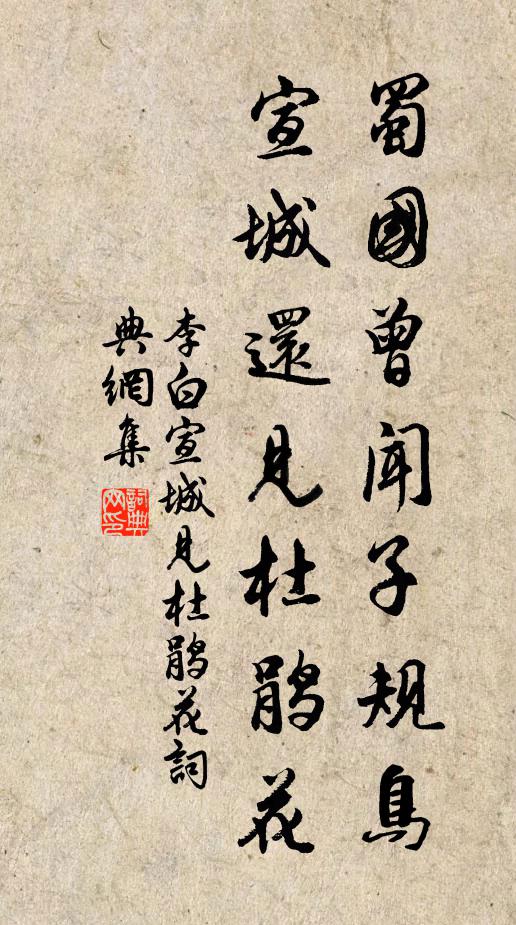 蜀國曾闻子規鳥
宣城還見杜鵑花
李白宣城見杜鵑花詞
典網集
詞典网印